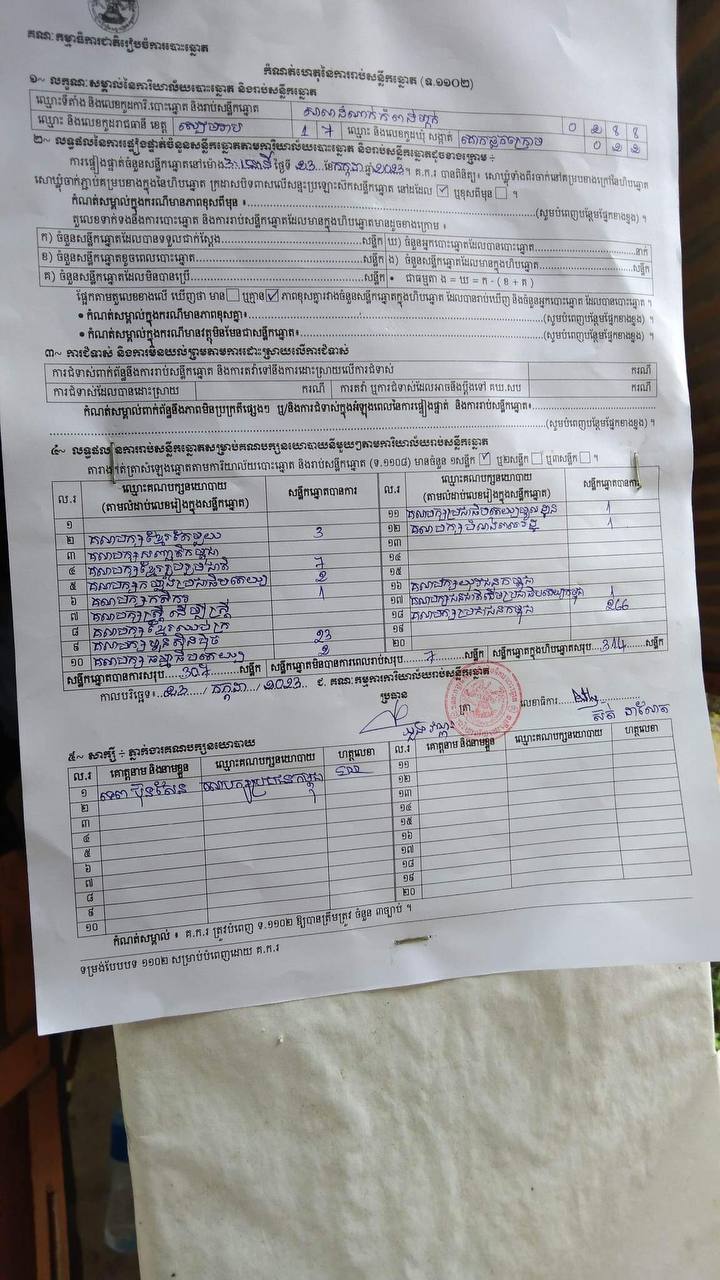 គណៈកម្មាធិការជាតិរៀបចំការបោះឆ្នោត
កំណត់ហេតុនៃការរាប់សន្លឹកឆ្នោត (ទ.១១០២)
១~ លក្ខណៈសម្គាល់នៃការិយាល័យបោះឆ្នោត និងរាប់សន្លឹកឆ្នោត
ឈ្មោះទីតាំង និងលេខកូដការិ.បោះឆ្នោត និងរាប់សន្លឹកឆ្នោត 0 2 8 8
ឈ្មោះ និងលេខកូដរាជធានី ខេត្ត សៀមរាប 1 7 ឈ្មោះ និងលេខកូដឃុំ សង្កាត់ 0 2 2
២~ លទ្ធផលនៃការផ្ទៀងផ្ទាត់ចំនួនសន្លឹកឆ្នោតតាមការិយាល័យបោះឆ្នោត និងរាប់សន្លឹកឆ្នោតដូចខាងក្រោម ៖
ការផ្ទៀងផ្ទាត់ចំនួនសន្លឹកឆ្នោតនៅម៉ោង ថ្ងៃទី 23 ខែកក្កដា ឆ្នាំ 2023។ គ.ក.រ បានពិនិត្យ៖ សោឃ្លុំទាំងពីរចាក់នៅគម្របខាងក្រៅនៃហិបឆ្នោត
សោឃ្លុំចាក់ភ្ជាប់គម្របខាងក្នុងនៃហិបឆ្នោត ក្រដាសបិទពាសលើសន្ទះប្រឡោះស៊កសន្លឹកឆ្នោត នៅដដែល ☑ ឬខុសពីមុន ☐ ។
កំណត់សម្គាល់ក្នុងករណីមានភាពខុសពីមុន ៖ (សូមបំពេញបន្ថែមផ្នែកខាងខ្នង) ។
តួលេខទាក់ទងនឹងការបោះឆ្នោត និងការរាប់សន្លឹកឆ្នោតដែលមានក្នុងហិបឆ្នោតមានដូចខាងក្រោម ៖
ក) ចំនួនសន្លឹកឆ្នោតដែលបានទទួលជាក់ស្តែង សន្លឹក ឃ) ចំនួនអ្នកបោះឆ្នោតដែលបានបោះឆ្នោត នាក់
ខ) ចំនួនសន្លឹកឆ្នោតខូចពេលបោះឆ្នោត សន្លឹក ង) ចំនួនសន្លឹកឆ្នោតដែលមានក្នុងហិបឆ្នោត សន្លឹក
គ) ចំនួនសន្លឹកឆ្នោតដែលមិនបានប្រើ សន្លឹក • ជាធម្មតា ង = ឃ = ក - ( ខ + គ )
ផ្អែកតាមតួលេខខាងលើ ឃើញថា មាន ☐ ឬគ្មាន ☑ ភាពខុសគ្នារវាងចំនួនសន្លឹកឆ្នោតក្នុងហិបឆ្នោត ដែលបានរាប់ឃើញ និងចំនួនអ្នកបោះឆ្នោត ដែលបានបោះឆ្នោត ។
• កំណត់សម្គាល់ក្នុងករណីមានភាពខុសគ្នា៖ (សូមបំពេញបន្ថែមផ្នែកខាងខ្នង) ។
• កំណត់សម្គាល់ក្នុងករណីមានវត្ថុមិនមែនជាសន្លឹកឆ្នោត៖ (សូមបំពេញបន្ថែមផ្នែកខាងខ្នង) ។
៣~ ការជំទាស់ និងការមិនយល់ព្រមតាមការដោះស្រាយលើការជំទាស់
ការជំទាស់ពាក់ព័ន្ធនឹងការរាប់សន្លឹកឆ្នោត និងការតវ៉ាទៅនឹងការដោះស្រាយលើការជំទាស់ ករណី
ការជំទាស់ដែលបានដោះស្រាយ ករណី ការតវ៉ា ឬការជំទាស់ដែលអាចនឹងប្តឹងទៅ គឃ.សប ករណី
កំណត់សម្គាល់ពាក់ព័ន្ធនឹងភាពមិនប្រក្រតីផ្សេងៗ ឬ/និងការជំទាស់ក្នុងអំឡុងពេលនៃការផ្ទៀងផ្ទាត់ និងការរាប់សន្លឹកឆ្នោត៖
(សូមបំពេញបន្ថែមផ្នែកខាងខ្នង) ។
៤~ លទ្ធផលនៃការរាប់សន្លឹកឆ្នោតសម្រាប់គណបក្សនយោបាយនីមួយៗតាមការិយាល័យរាប់សន្លឹកឆ្នោត
តារាងកត់ត្រាសំឡេងឆ្នោតតាមការិយាល័យបោះឆ្នោត និងរាប់សន្លឹកឆ្នោត (ទ.១១០៨) មានចំនួន ១សន្លឹក ☑ ឬ២សន្លឹក ☐ ឬ៣សន្លឹក ☐ ។
ល.រ ឈ្មោះគណបក្សនយោបាយ (តាមលំដាប់លេខរៀងក្នុងសន្លឹកឆ្នោត) សន្លឹកឆ្នោតបានការ ល.រ ឈ្មោះគណបក្សនយោបាយ (តាមលំដាប់លេខរៀងក្នុងសន្លឹកឆ្នោត) សន្លឹកឆ្នោតបានការ
១ ១១ គណបក្សប្រជាធិបតេយ្យមូលដ្ឋាន 1
២ គណបក្សខ្មែរតែមួយ 3 ១២ 1
៣ គណបក្សសញ្ជាតិកម្ពុជា ១៣
៤ គណបក្សខ្មែររួបរួមជាតិ 7 ១៤
៥ គណបក្សកម្លាំងប្រជាធិបតេយ្យ 2 ១៥
៦ គណបក្សកសិករ 1 ១៦ គណបក្សយុវជនកម្ពុជា
៧ គណបក្សស្ត្រីដើម្បីស្ត្រី ១៧ គណបក្សជនជាតិដើមប្រជាធិបតេយ្យកម្ពុជា 1
៨ គណបក្សខ្មែរឈប់ក្រ ១៨ គណបក្សប្រជាជនកម្ពុជា 266
៩ គណបក្សហ្វ៊ុនស៊ិនប៉ិច 23 ១៩
១០ គណបក្សធម្មាធិបតេយ្យ 2 ២០
សន្លឹកឆ្នោតបានការសរុប 307 សន្លឹក សន្លឹកឆ្នោតមិនបានការពេលរាប់សរុប 7 សន្លឹក សន្លឹកឆ្នោតក្នុងហិបឆ្នោតសរុប 314 សន្លឹក
កាលបរិច្ឆេទ៖ 23 / កក្កដា / 2023 ៩. គណៈកម្មការការិយាល័យរាប់សន្លឹកឆ្នោត
ប្រធាន ត្រា លេខាធិការ
៥~ សាក្សី ÷ ភ្នាក់ងារគណបក្សនយោបាយ
ល.រ គោត្តនាម និងនាមខ្លួន ឈ្មោះគណបក្សនយោបាយ ហត្ថលេខា ល.រ គោត្តនាម និងនាមខ្លួន ឈ្មោះគណបក្សនយោបាយ ហត្ថលេខា
១ ទេព ប៊ុនសែន គណបក្សប្រជាជនកម្ពុជា ១១
២ ១២
៣ ១៣
៤ ១៤
៥ ១៥
៦ ១៦
៧ ១៧
៨ ១៨
៩ ១៩
១០ ២០
កំណត់សម្គាល់ ៖ គ.ក.រ ត្រូវបំពេញ ទ.១១០២ ឱ្យបានត្រឹមត្រូវ ចំនួន ៣ច្បាប់ ។
ទម្រង់បែបបទ ១១០២ សម្រាប់បំពេញដោយ គ.ក.រ